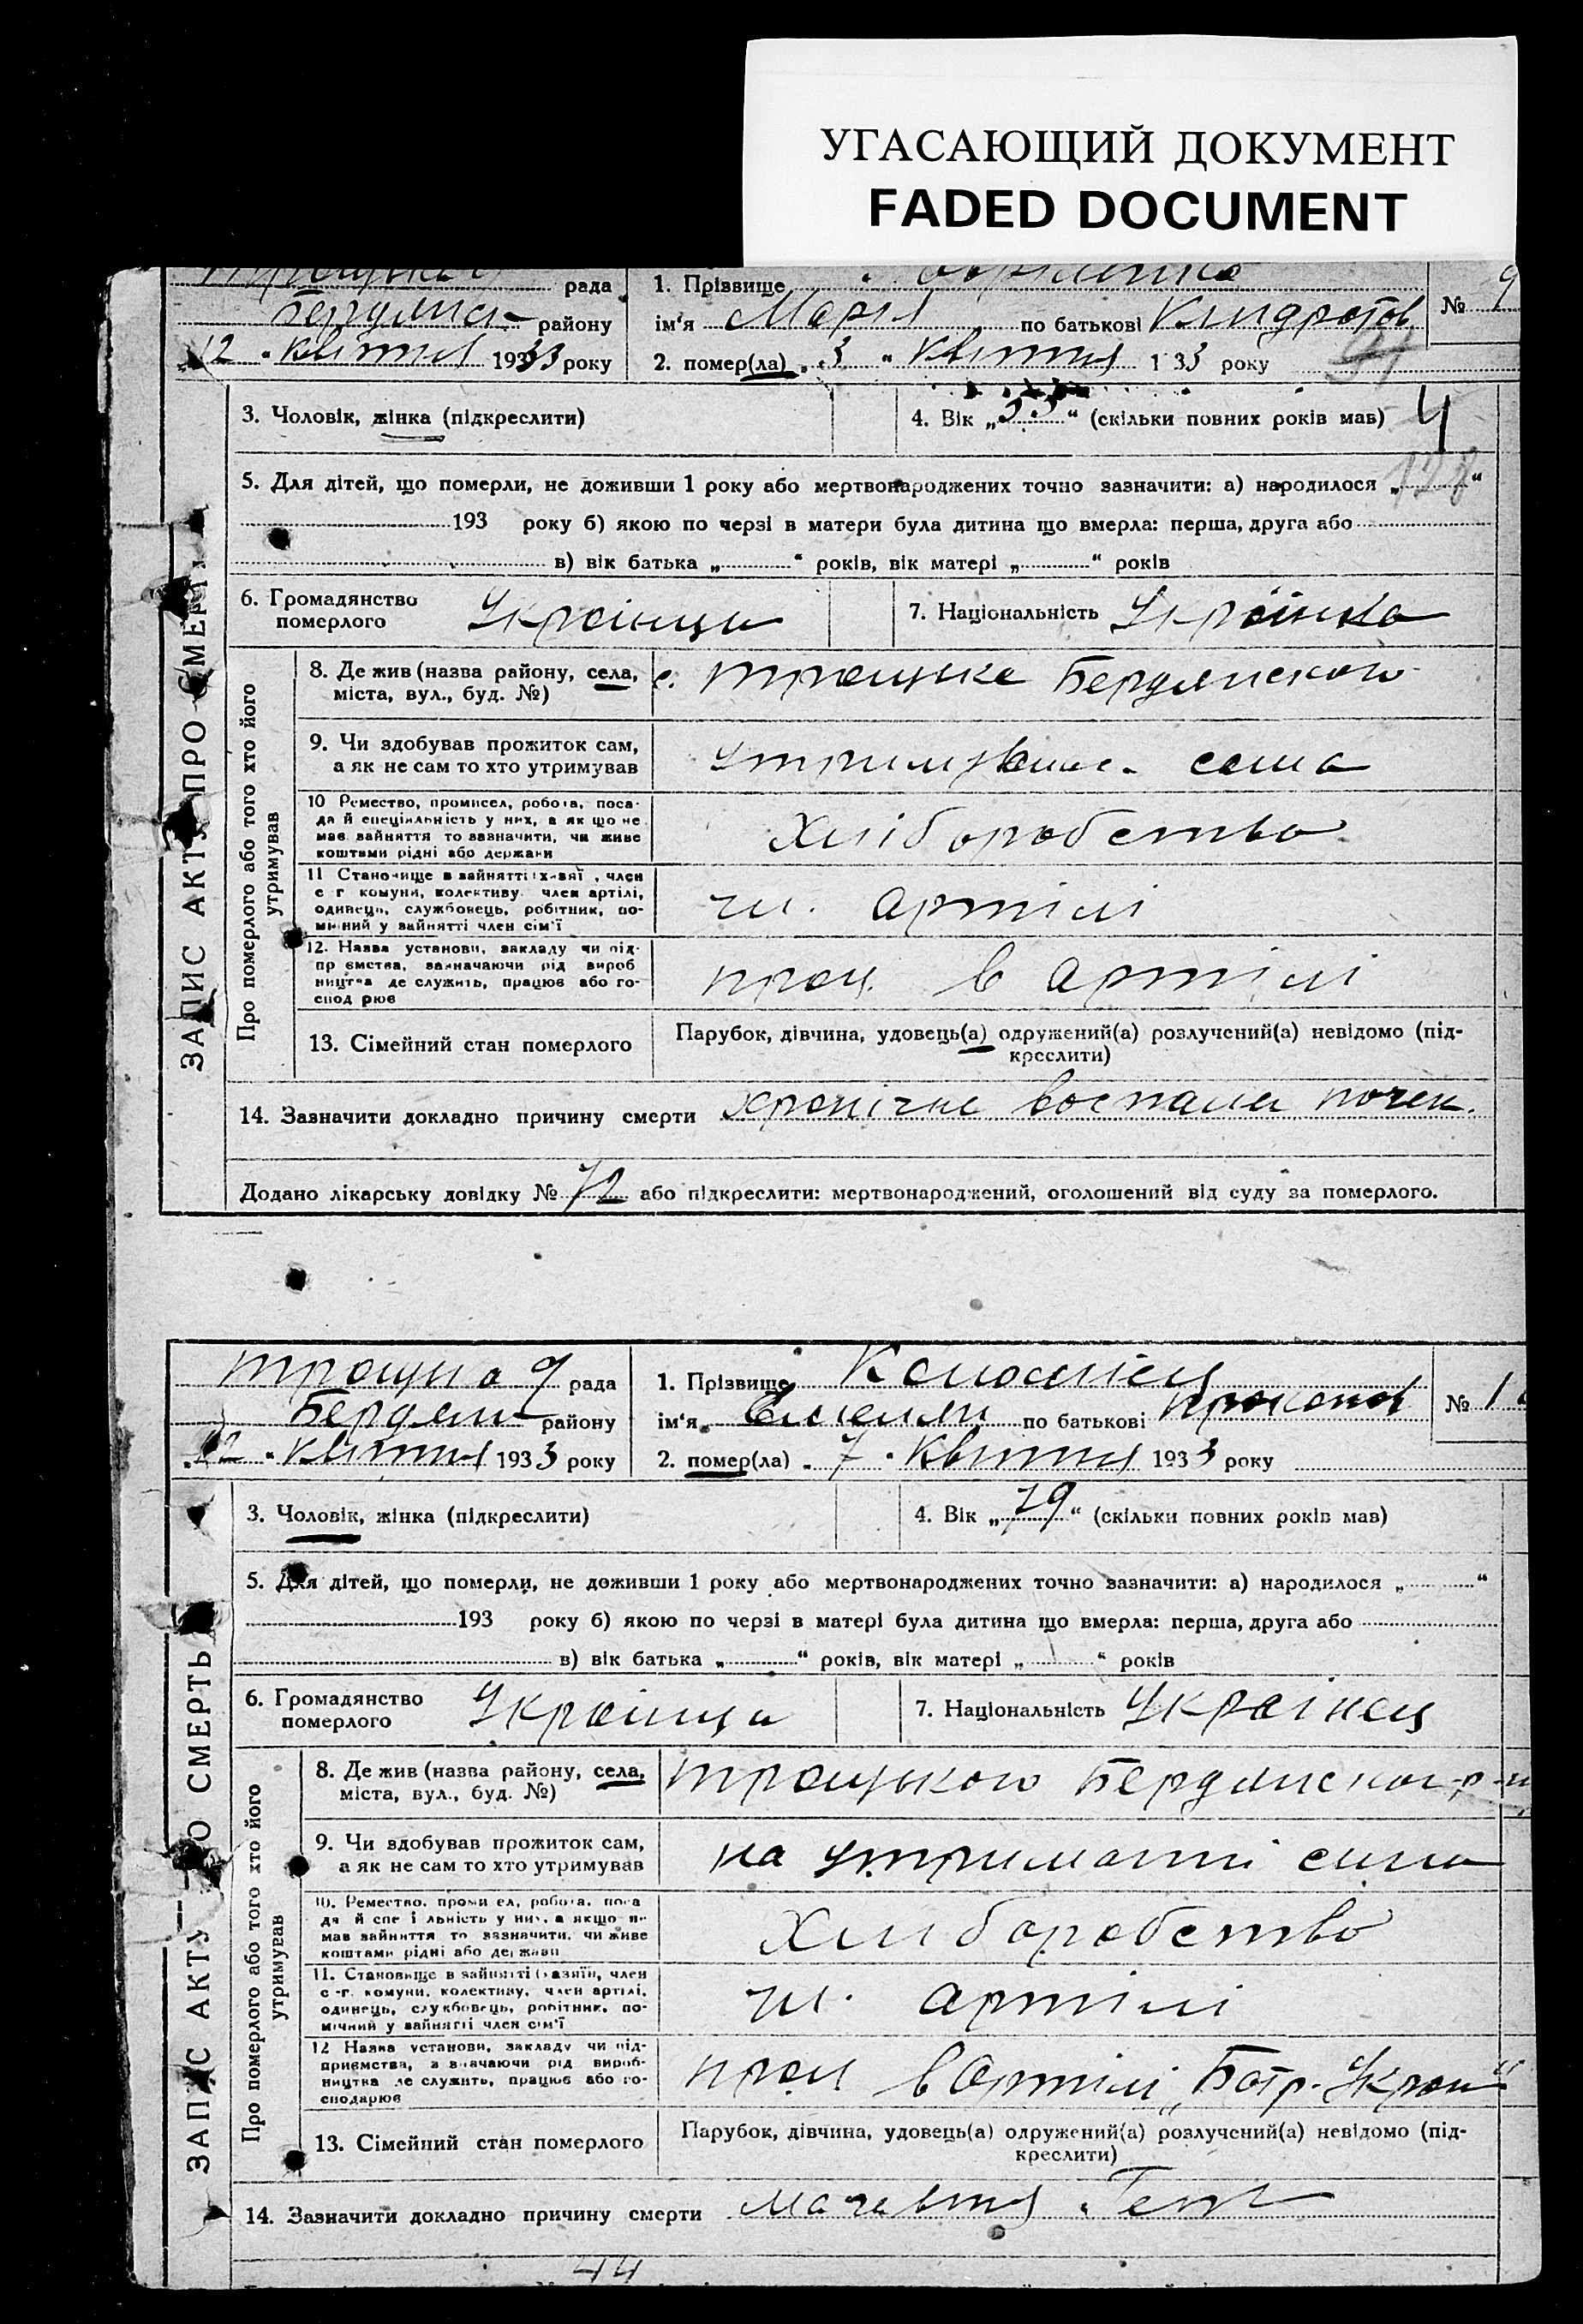 УГАСАЮЩИЙ ДОКУМЕНТ
FADED DOCUMENT
рада
района району
12 " квітня 1933 року
1. Прізвище
ім'я Марія по батькові Кындратов
2. помер(ла) " 3 " Квітня 133 року
№ 9
ЗАПИС АКТУ ПРО СМЕРТЬ
3. Чоловік, жінка (підкреслити)
4. Вік „ “ (скільки повних років мав) 4
5. Для дітей, що померли, не доживши 1 року або мертвонароджених точно зазначити: а) народилося „ “
193 року б) якою по черзі в матери була дитина що вмерла: перша, друга або
в) вік батька „ “ років, вік матері „ “ років
6. Громадянство
померлого
Украінци
7. Національність Украінка
Про померлого або того хто його
утримував
8. Де жив (назва району, села,
міста, вул., буд. №)
с. Троицьке Бердянского
9. Чи здобував прожиток сам,
а як не сам то хто утримував
сама
10 Ремество, промисел, робота, поса-
да й спеціяльність у них, а як що не
має зайняття то зазначити, чи живе
коштами рідні або держави
Хліборобство
11 Становище в зайнятті член
с г комуни, колективу член артілі,
одинець, службовець, робітник, по-
мічний у зайнятті член сім'ї
чл. артілі
12. Назва установи, закладу чи під-
приємства, зазначаючи рід вироб
ництва де служить, працює або го-
спод рює
прац. в артілі
13. Сімейний стан померлого
Парубок, дівчина, удовець(а) одружений(а) розлучений(а) невідомо (під-
креслити)
14. Зазначити докладно причину смерти хронічне воспален почек.
Додано лікарську довідку № 72 або підкреслити: мертвонароджений, оголошений від суду за померлого.
рада
Бердян району
12 " квітня 1933 року
1. Прізвище
ім'я по батькові
2. помер(ла) " 7 " Квітня 1933 року
№ 1
ЗАПИС АКТУ ПРО СМЕРТЬ
3. Чоловік, жінка (підкреслити)
4. Вік „ 79 “ (скільки повних років мав)
5. Для дітей, що померли, не доживши 1 року або мертвонароджених точно зазначити: а) народилося „ “
193 року б) якою по черзі в матері була дитина що вмерла: перша, друга або
в) вік батька „ “ років, вік матері „ “ років
6. Громадянство
померлого
Украінци
7. Національність Украінец
Про померлого або того хто його
утримував
8. Де жив (назва району, села,
міста, вул., буд. №)
Троицького Бердянског р-н
9. Чи здобував прожиток сам,
а як не сам то хто утримував
на утриманні сина
10. Ремество, промисел, робота, поса
да й спеціяльність у них, а якщо не
має зайняття то зазначити, чи живе
коштами рідні або держави
Хліборобство
11. Становище в зайнятті (хазяїн, член
с.-г. комуни, колективу, член артілі,
одинець, службовець, робітник, по-
мічний у зайнятті член сім'ї
чл. артілі
12 Назва установи, закладу чи під-
приємства, зазначаючи рід вироб-
ництва де служить, працює або го-
сподарює
прац в Артілі „Батр. Украї“
13. Сімейний стан померлого
Парубок, дівчина, удовець(а) одружений(а) розлучений(а) невідомо (під-
креслити)
14. Зазначити докладно причину смерти
44